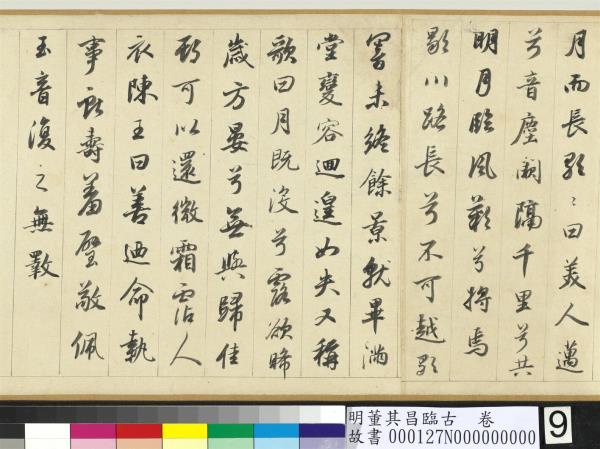 月而長歌〻曰美人邁
兮音塵闕隔千里兮共
明月臨風歎兮將焉
歇川路長兮不可越歌
響未終餘景就畢滿
堂變容迴遑如失又稱
歌曰月既沒兮露欲晞
歲方晏兮無與歸佳
期可以還微霜霑人
衣陳王曰善迺命執
事獻壽羞璧敬佩
玉音復之無斁
明董其昌臨古 卷
故書 000127N000000000
9